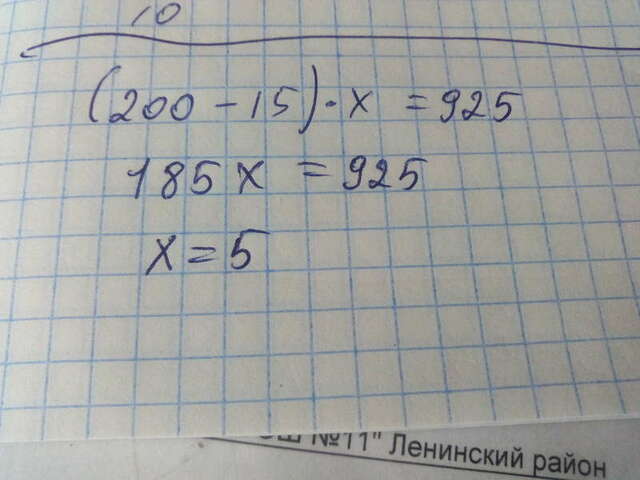 10
(200 - 15) · x = 925
185x = 925
x = 5
№11" Ленинский район